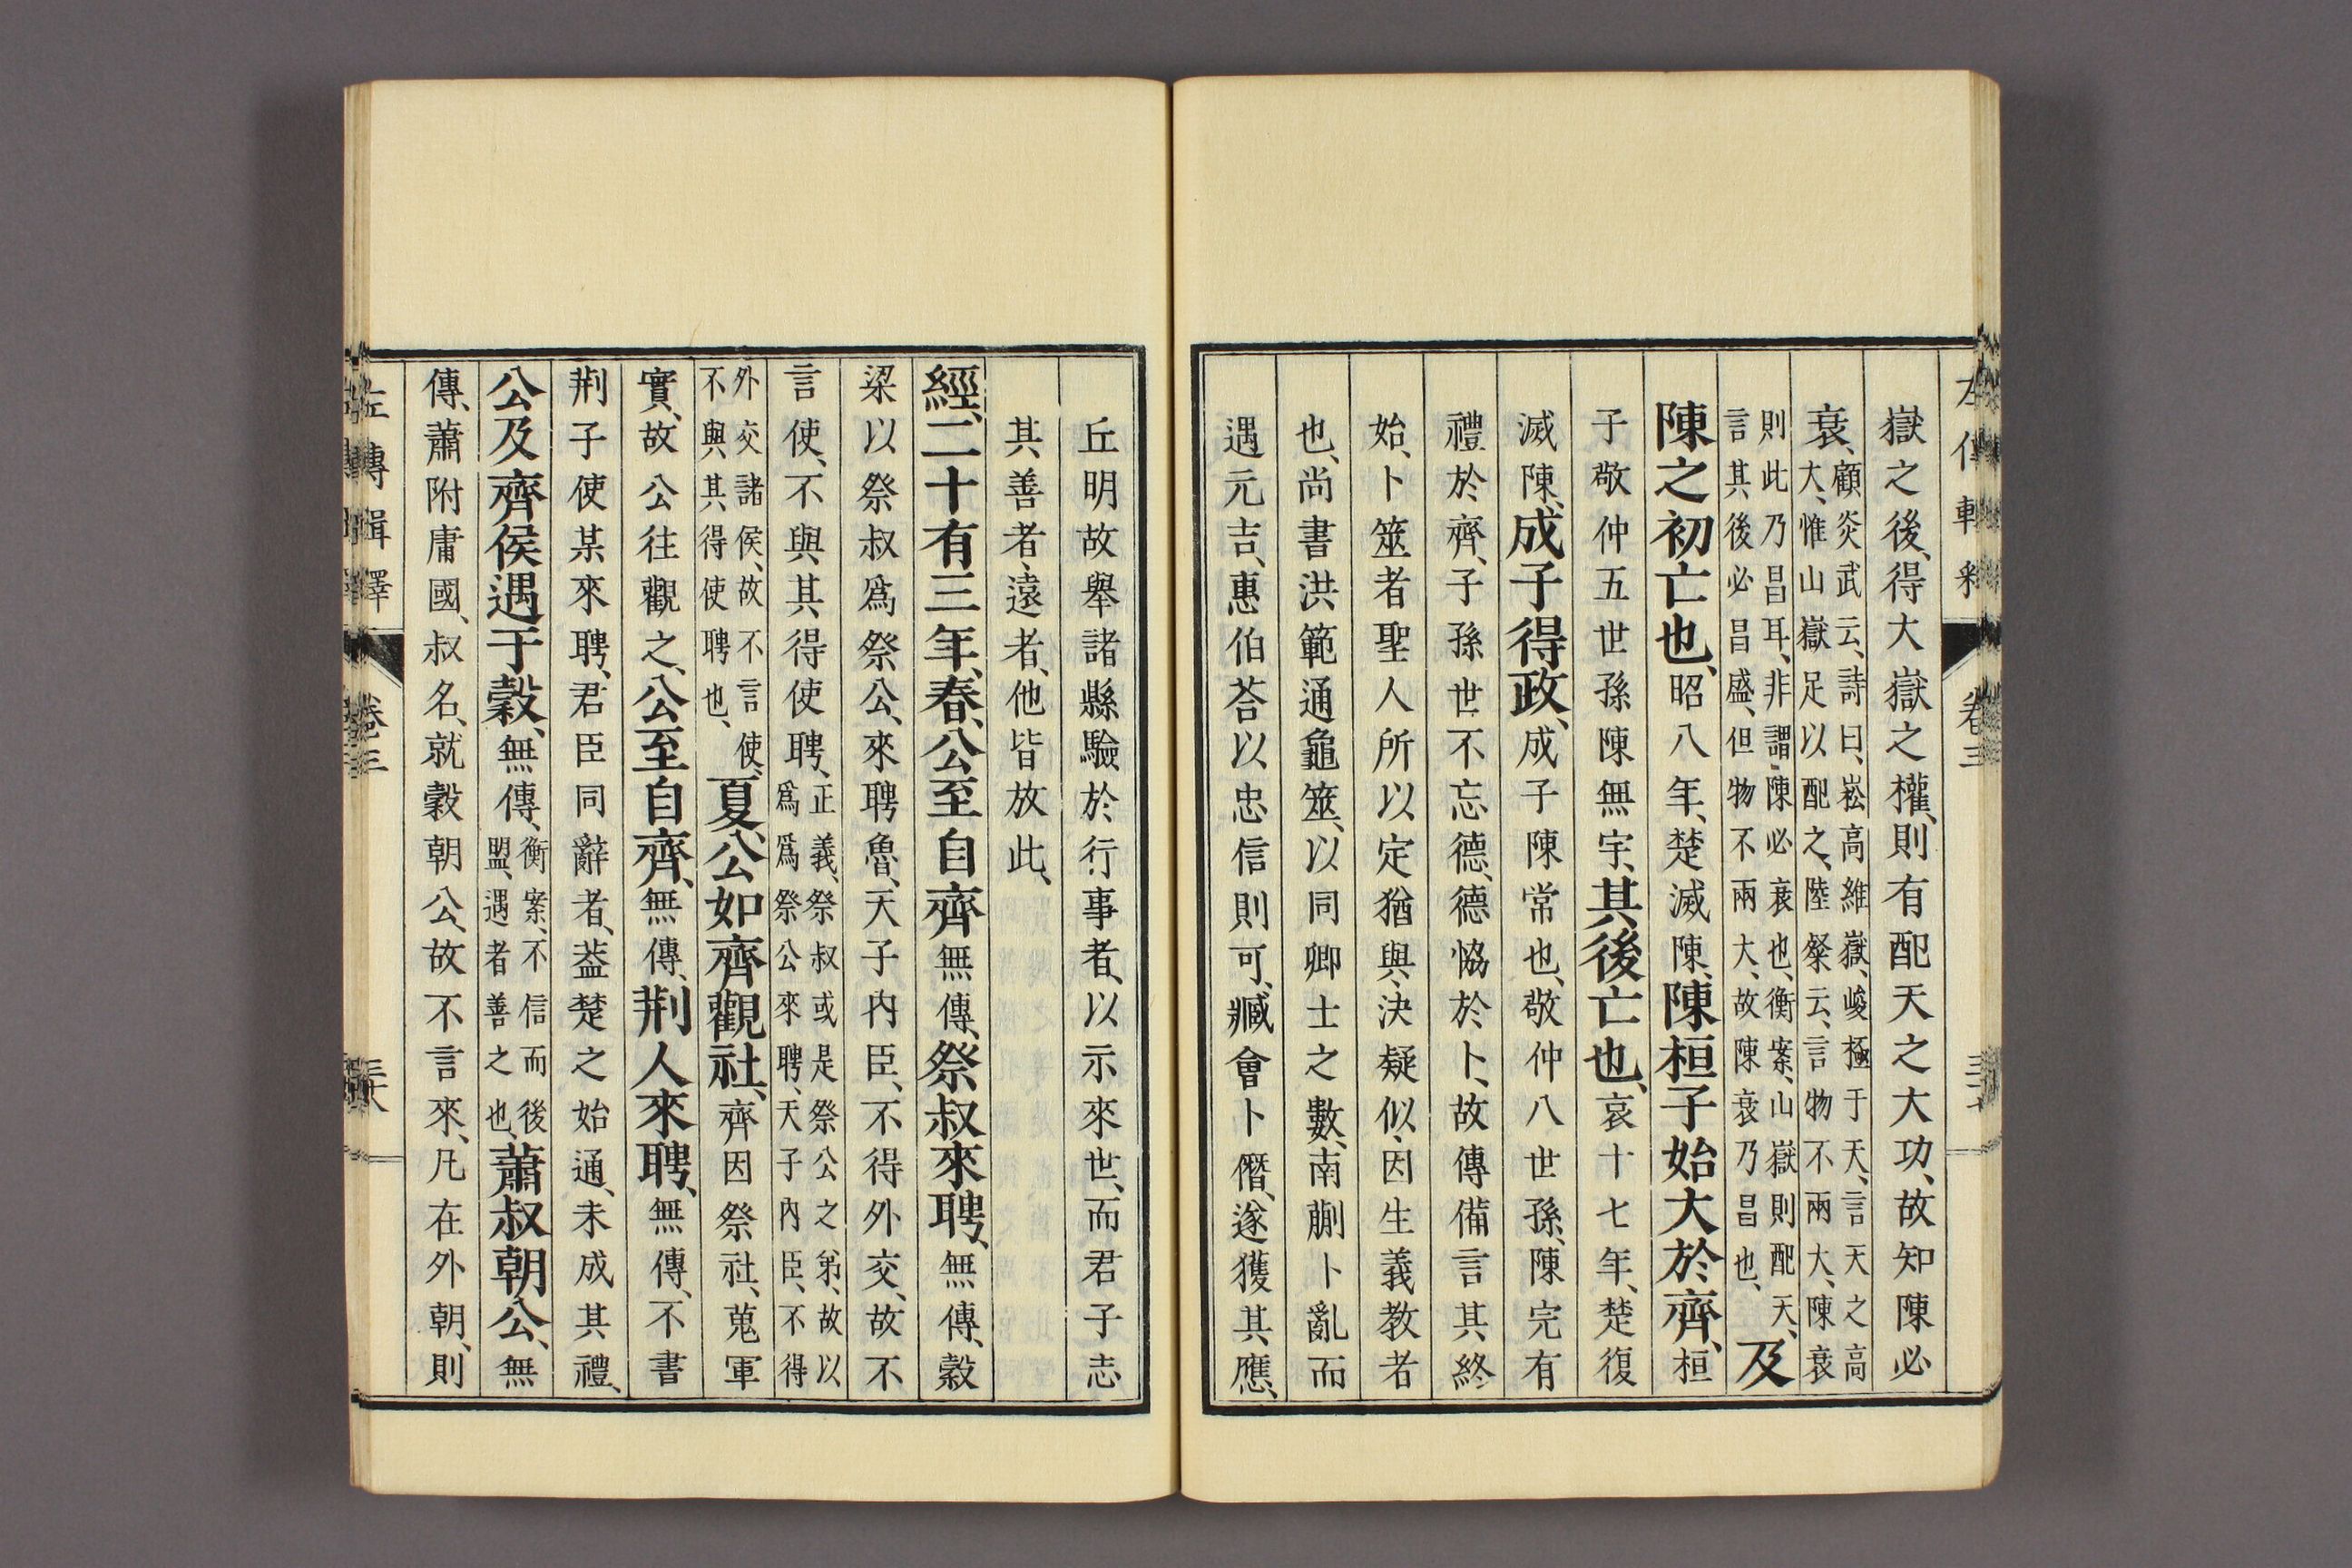 嶽之後、得大嶽之權、則有配天之大功、故知陳必
衰、顧炎武云、詩曰、崧高維嶽、峻極于天、言天之高
大、惟山嶽足以配之、陸粲云、言物不兩大、陳衰
則此乃昌耳、非謂陳必衰也、衡案、山嶽則配天、
言其後必昌盛、但物不兩大、故陳衰乃昌也、及
陳之初亡也、昭八年、楚滅陳、陳桓子始大於齊、桓
子敬仲五世孫陳無宇、其後亡也、哀十七年、楚復
滅陳、成子得政、成子陳常也、敬仲八世孫、陳完有
禮於齊、子孫世不忘德、德恊於卜、故傳備言其終
始、卜筮者聖人所以定猶與、決疑似、因生義教者
也、尚書洪範通龜筮、以同卿士之數、南蒯卜亂而
遇元吉、惠伯荅以忠信則可、臧會卜僭、遂獲其應、
丘明故舉諸縣驗於行事者、以示來世、而君子志
其善者、遠者、他皆放此、
經、二十有三年、春、公至自齊、無傳、祭叔來聘、無傳、穀
梁以祭叔爲祭公、來聘魯、天子內臣、不得外交、故不
言使、不與其得使聘、正義、祭叔或是祭公之弟、故以
爲爲祭公來聘、天子內臣、不得
外交諸侯、故不言使、
不與其得使聘也、夏、公如齊觀社、齊因祭社、蒐軍
實、故公往觀之、公至自齊、無傳、荆人來聘、無傳、不書
荆子使某來聘、君臣同辭者、葢楚之始通、未成其禮、
公及齊侯遇于穀、無傳、衡案、不信而後
盟、遇者善之也、蕭叔朝公、無
傳、蕭附庸國、叔名、就穀朝公、故不言來、凡在外朝、則
左傳輯釋
卷三